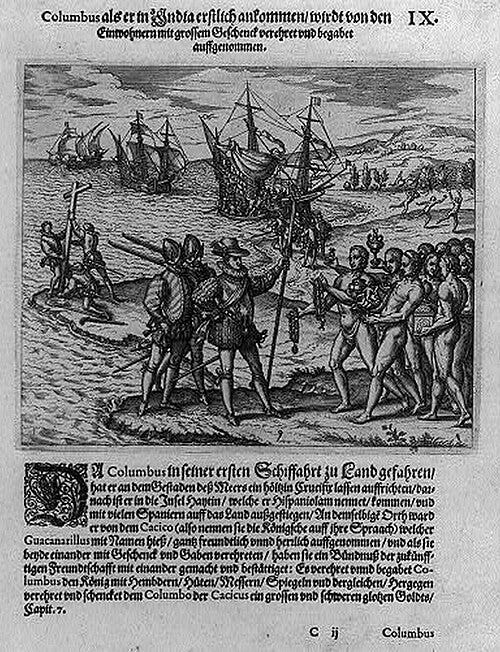 Columbus als er in India erstlich ankommen/ wirdt von den IX.
Einwohnern mit grossem Geschenck verehret vnd begabet
auffgenommen.
DA Columbus in seiner ersten Schiffahrt zu Land gefahren/
hat er an dem Gestaden deß Meers ein höltzin Crucifix lassen auffrichten/ dar-
nach ist er in die Insel Haytin/ welche er Hispaniolam nennet/ kommen/ vnd
mit vielen Spaniern auff das Land außgestiegen/ An demselbigē Orth ward
er von dem Cacico (also nennen sie die Königsche auff ihre Sprach) welcher
Guacanarillus mit Namen hieß/ gantz freundtlich vnnd herrlich auffgenommen/ vnd als sie
beyde einander mit Geschenck vnd Gaben verehreten/ haben sie ein Bündnuß der zukünff-
tigen Freundtschafft mit einander gemacht vnd bestättiget: Es verehret vnnd begabet Co-
lumbus den König mit Hembdern/ Hüten/ Messern/ Spiegeln vnd dergleichen/ Hergegen
verehret vnd schencket dem Columbo der Cacicus ein grossen vnd schweren glotzen Goldts/
Capit. 7.
C ij Columbus